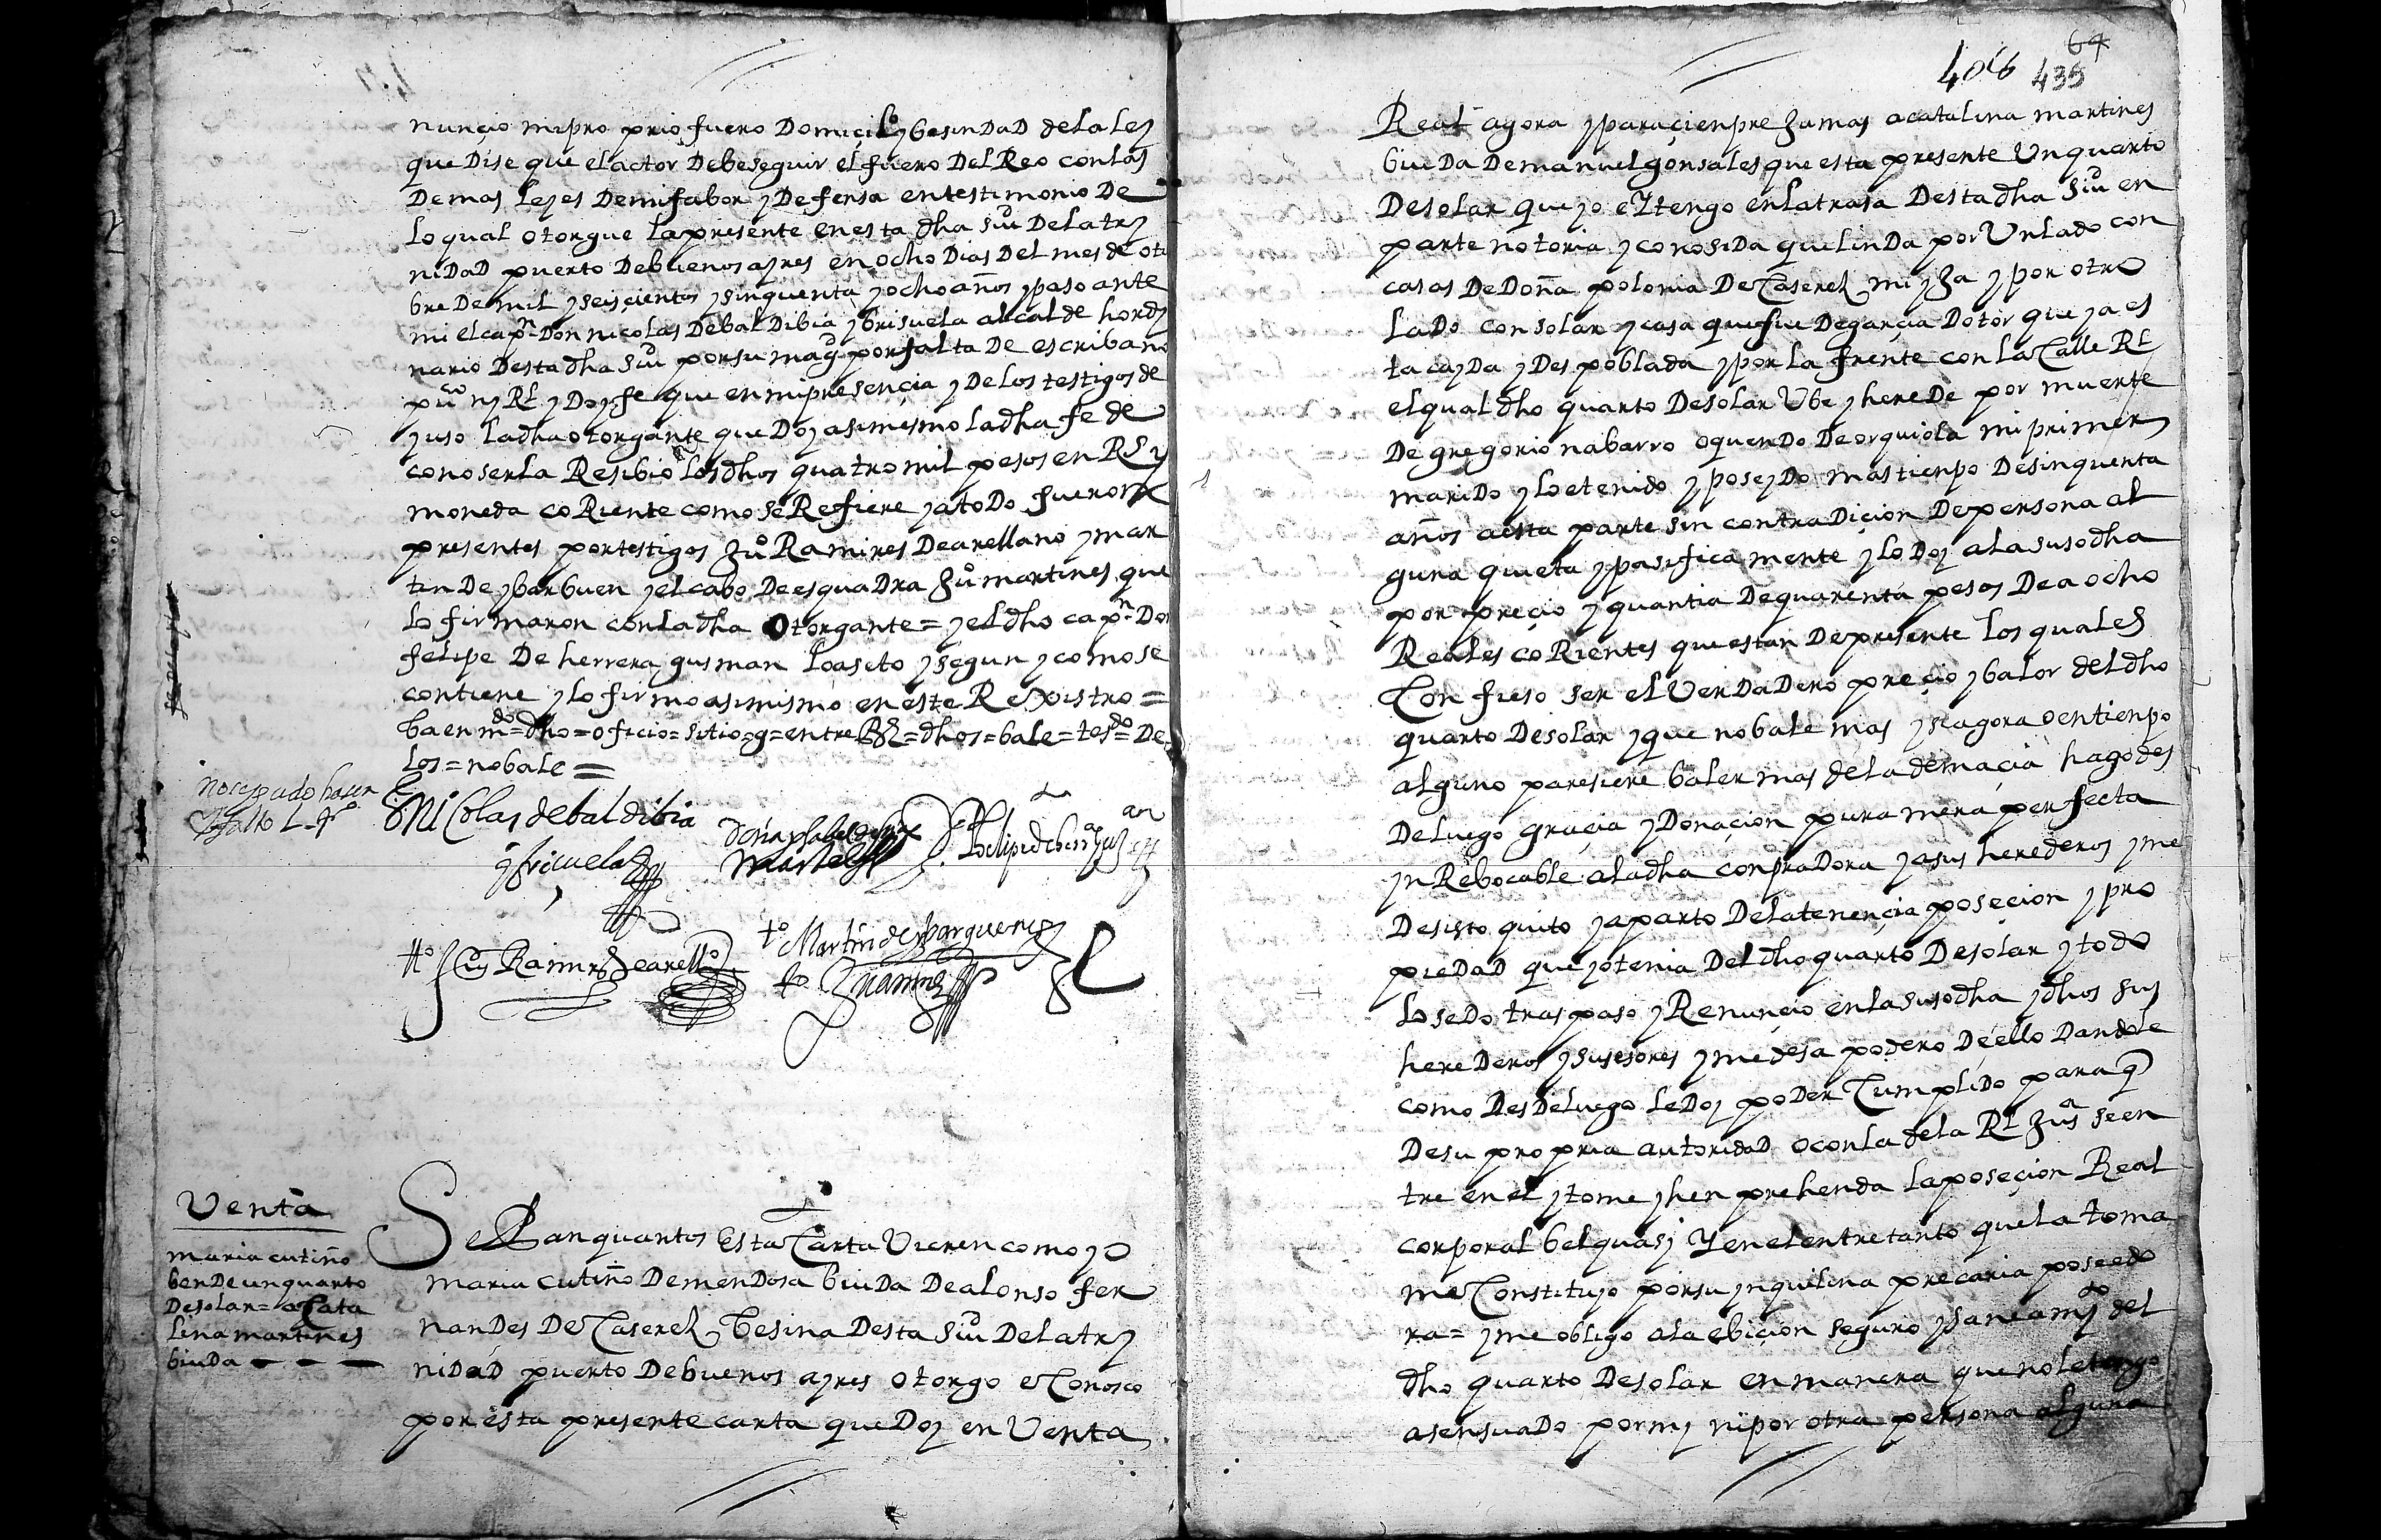 nunçio mi pro prio fuero Domiçilº y besindad de la ley
que Dise que el actor Debe seguir el fuero Del Reo con las
Demas leyes De mi fabor y Defensa en testimonio De
lo qual otorgue la presente en esta dha Siu De la try
nidad puerto De buenos ayres en ocho Dias Del mes de otu
bre De mil y seisçientos y sinquenta y ocho años y paso ante
mi el capn Don nicolas De bal Dibia y brisuela alcalde hordi
nario Desta dha Siu por su magd por falta De escribano
puco ny Rl y Doy fe que en mi presençia y De los testigos de
yuso la dha otorgante que Doy asimesmo la dha fe de
conoserla Resibio los dhos quatro mil pesos en Rs y
moneda coRiente como se Refiere y a todo fueron
presentes por testigos Juº Ramires De arellano y mar
tin De ybarbuen y el cabo De esquadra Juº martines que
lo firmaron con la dha Otorgante = y el dho capn Don
felipe De herrera gusman lo aseto y segun y como se
contiene y lo firmo asimismo en este Rexistro =
ba en mdo = dho = oficio = sitio = g = entre Rs = dhos = bale = tesdo = De
los = no bale =
no se pudo haser
falto
Nicolas de baldibia
y briçuela
Doña ysabel
martel
Don Phelipe de herra guzman
tº Martin de ybarguen
ttº Juº Ramirs de arellº
tº Ju martines
Venta
maria cutiño
bende un quarto
De solar = a Cata
lina martines
biuda
Sepan quantos Esta Carta Vieren como yo
maria cutiño De mendosa biuda De alonso fer
nandes De Caseres Vesina Desta Siu De la try
nidad puerto De buenos ayres otorgo e Conosco
por esta presente carta que Doy en Venta
64
406 435
Real agora y para çienpre Jamas a catalina martines
biuda De manuel gonsales que esta presente Un quarto
De solar que yo e Y tengo en la trasa Desta dha Siu en
parte notoria y conosida que linda por Un lado con
casas De Doña polonia De Caseres mi yJa y por otro
lado con solar y casa que fue De garçia Dotor que ya es
ta cayda y Des poblada y por la frente con la Calle Rl
el qual dho quarto De solar Ube y herede por muerte
De gregorio nabarro oquendo De orquiola mi primer
marido y lo e tenido y poseydo mas tienpo De sinquenta
años a esta parte sin contradiçion De persona al
guna quieta y pasificamente y lo Doy a la susodha
por preçio y quantia De quarenta pesos De a ocho
Reales coRientes que estan De presente los quales
Confieso ser el Verdadero preçio y balor del dho
quarto De solar y que no bale mas y si agora o en tienpo
alguno paresiere baler mas de la demaçia hago des
De luego graçia y Donaçion pura mera perfecta
ynRebocable a la dha conpradora y a sus herederos y me
Desisto quito y aparto De la tenençia poseçion y pro
piedad que yo tenia Del dho quarto De solar y todo
lo sedo traspaso y Renunçio en la susodha y dhos sus
herederos y susesores y me desapodero De ello Dandole
como Desde luego le Doy poder Cumplido para q
De su propria autoridad o con la de la Rl Jusa se en
tre en el y tome y henprehenda la poseçion Real
corporal bel quasi Y en el entretanto que la toma
me Constituyo por su ynquilina precaria poseedo
ra = y me obligo a la ebiçion seguro y saneamyto del
dho quarto De solar en manera que no le tengo
asensuado por my ni por otra persona alguna